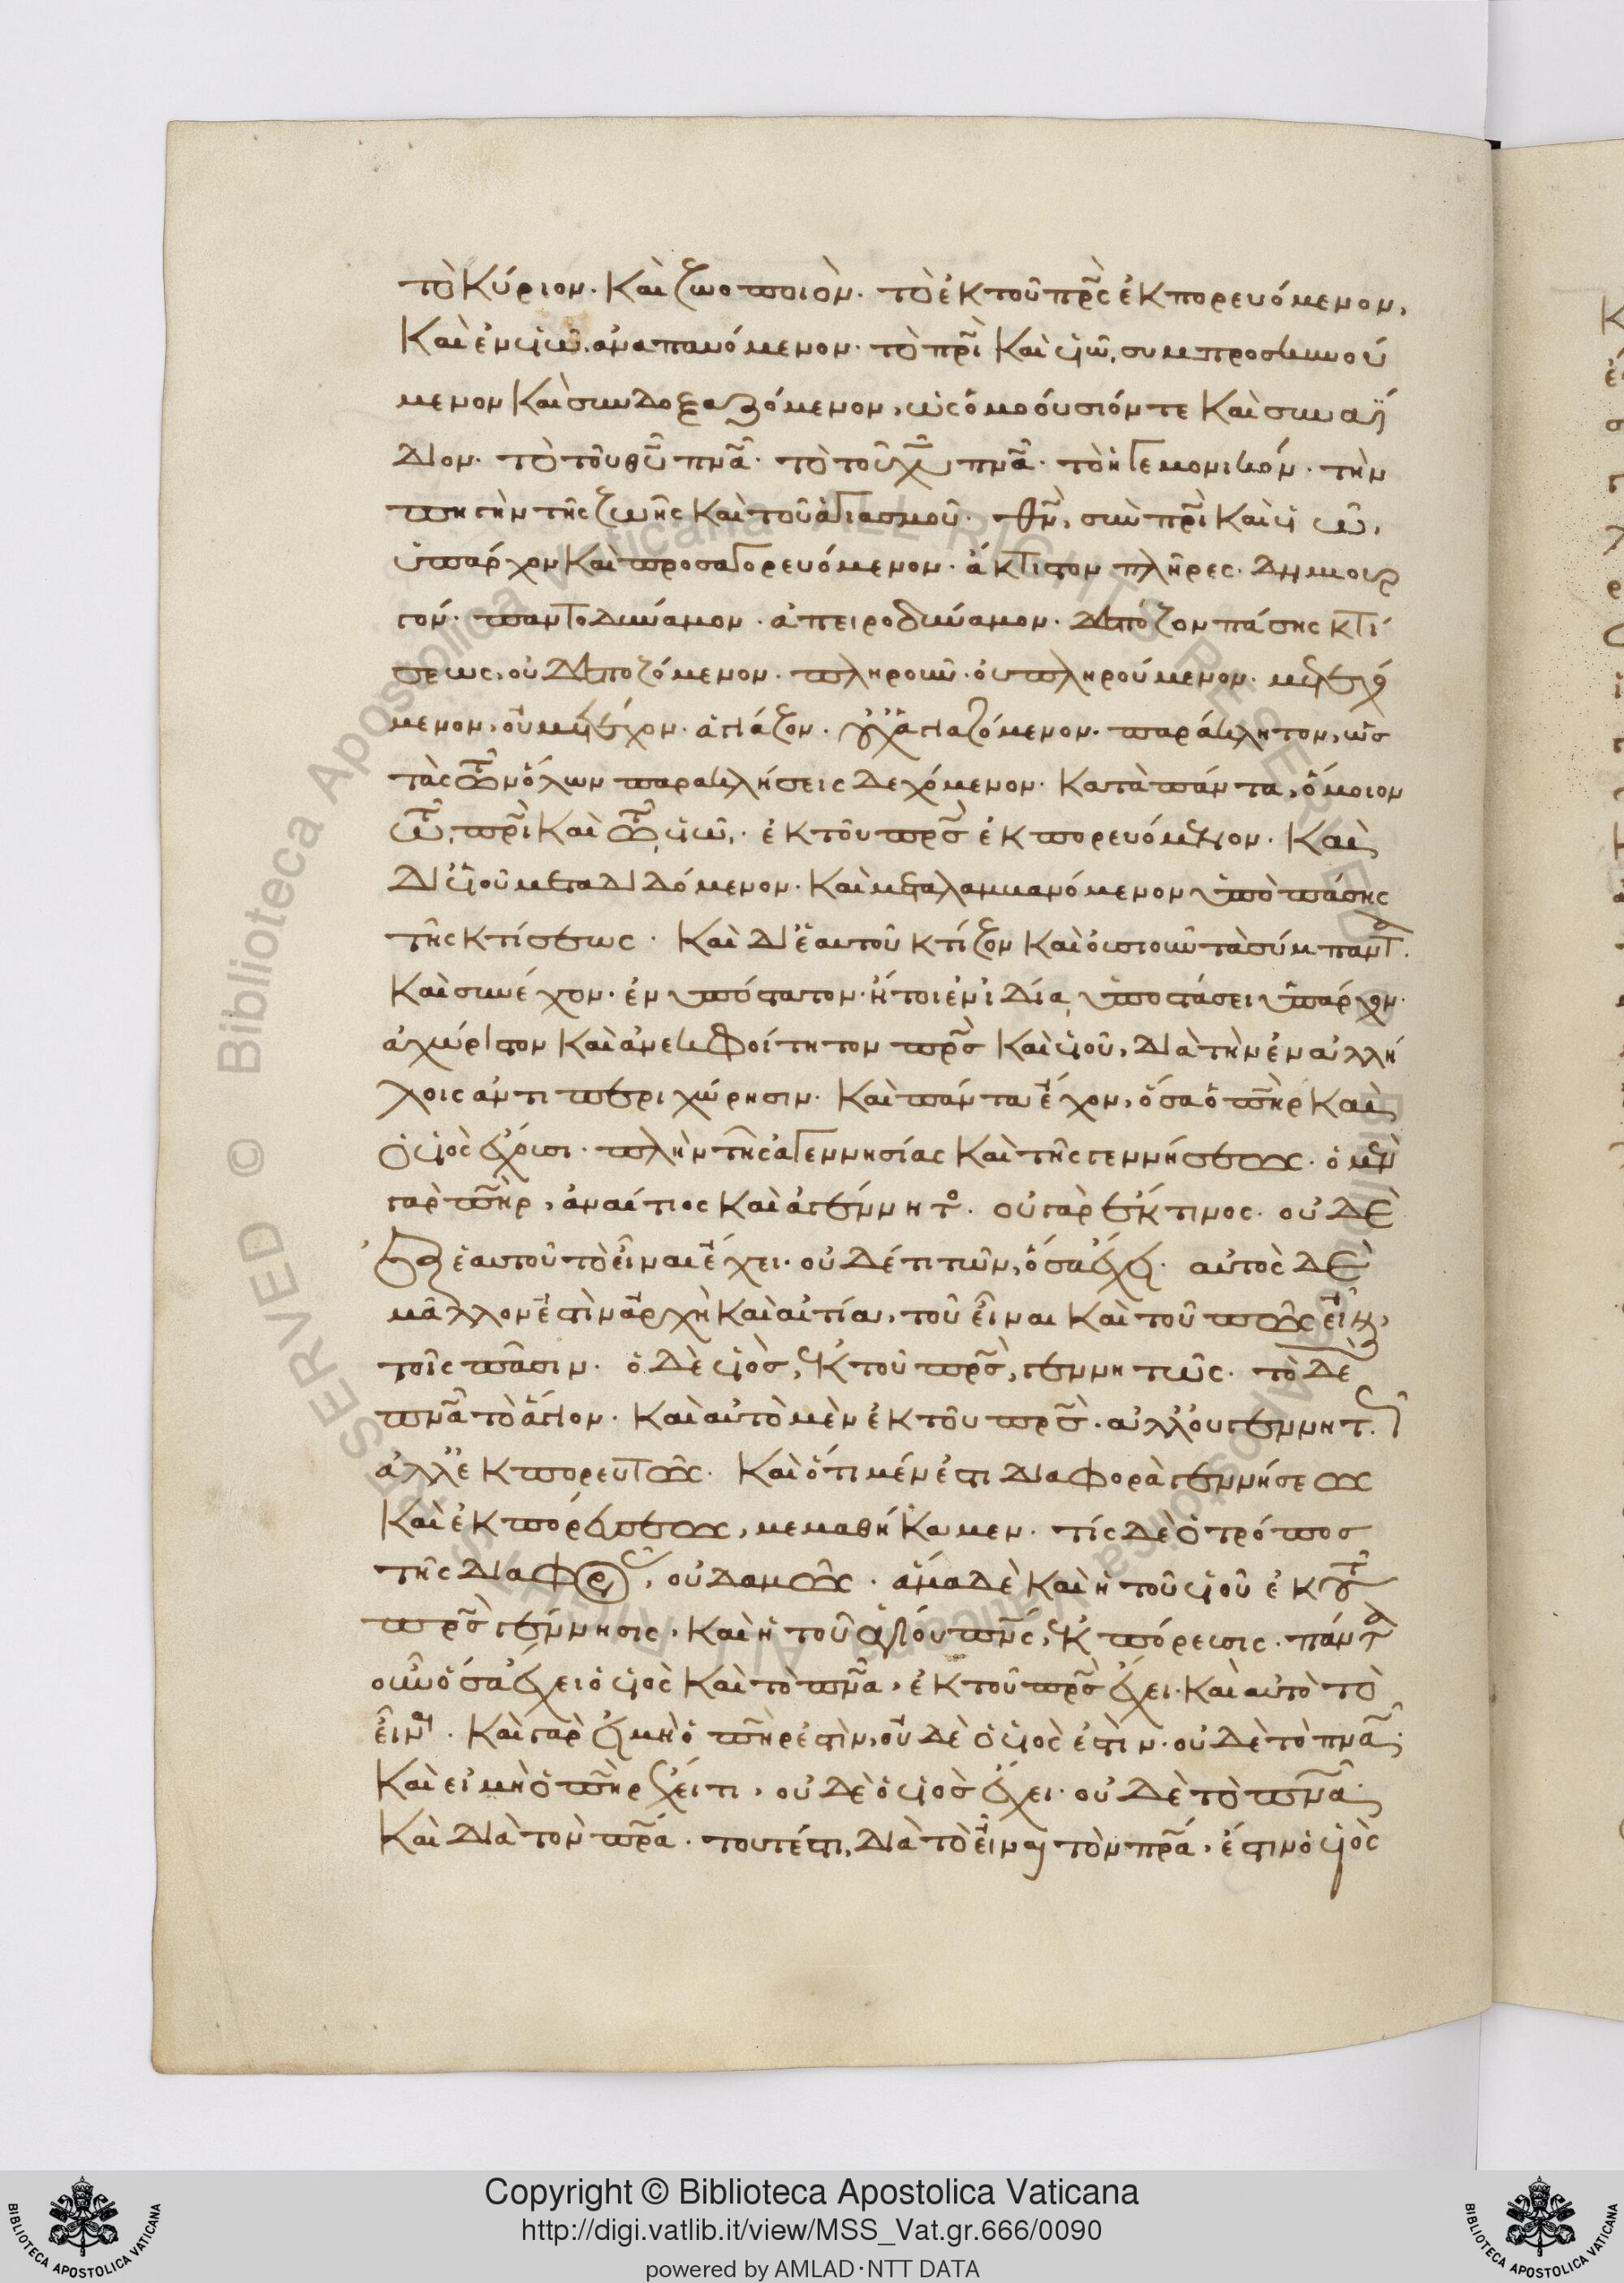 τὸ κύριον· καὶ ζωοποιὸν· τὸ ἐκ τοῦ πρ̅ς ἐκπορευόμενον,
καὶ ἐν υἱῶ, ἀναπαυόμενον· τὸ πρ̅ι καὶ υἱῶ, συμπροσκυνού
μενον καὶ συνδοξαζόμενον, ὡς ὁμοούσιόν τε καὶ συναΐ
διον· τὸ τοῦ θυ̅ πνα̅· τὸ τοῦ χυ̅ πνα̅· τὸ ἡγεμονικόν· τὴν
πηγὴν τῆς ζωῆς καὶ τοῦ ἁγιασμοῦ· θν̅, σὺν πρ̅ι καὶ υἱῶ,
ὑπάρχον καὶ προσαγορευόμενον· ἄκτιστον πλῆρες· δημιουρ
γόν· παντοδυνάμον· ἀπειροδυνάμον· δεσπόζον πάσης κτί
σεως, οὐ δεσποζόμενον· πληροῦν· οὐ πληρούμενον· μετεχό
μενον, οὐ μετέχον· ἁγιάζον· οὐχ ἁγιαζόμενον· παράκλητον, ὡς
τὰς τῶν ὅλων παρακλήσεις δεχόμενον· κατὰ πάντα, ὅμοιον
τῶ, πρ̅ι καὶ τῶ, υἱῶ,· ἐκ τοῦ πρ̅ς ἐκπορευόμενον· καὶ
δι' υἱοῦ μεταδιδόμενον· καὶ μεταλαμβανόμενον ὑπὸ πάσης
τῆς κτίσεως· καὶ δι' ἑαυτοῦ κτίζον καὶ οὐσιοῦν τὰ σύμπαντα·
καὶ συνέχον· ἐνυπόστατον· ἤτοι ἐν ἰδία, ὑποστάσει ὑπάρχον·
ἀχώριστον καὶ ἀνεκφοίτητον πρ̅ς καὶ υἱοῦ, διὰ τὴν ἐν ἀλλή
λοις ἀντιπεριχώρησιν· καὶ πάντα ἔχον, ὅσα ὁ πη̅ρ καὶ
ὁ υἱὸς ἔχουσι· πλὴν τῆς ἀγεννησίας καὶ τῆς γεννήσεως· ὁ μὲν
γὰρ πη̅ρ, ἀναίτιος καὶ ἀγέννητος· οὐ γὰρ ἔκ τινος· οὐδὲ
ἐξ ἑαυτοῦ τὸ εἶναι ἔχει· οὐδέ τι τῶν, ὅσα ἔχει· αὐτὸς δὲ
μᾶλλον ἐστὶν ἀρχὴ καὶ αἰτία, τοῦ εἶναι καὶ τοῦ πῶς εἶναι,
τοῖς πᾶσιν· ὁ δὲ υἱὸς, ἐκ τοῦ πρ̅ς, γεννητῶς· τὸ δὲ
πνα̅ τὸ ἅγιον· καὶ αὐτὸ μὲν ἐκ τοῦ πρ̅ς· ἀλλ' οὐ γεννητῶς
ἀλλ' ἐκπορευτῶς· καὶ ὅτι μέν ἐστι διαφορὰ γεννήσεως
καὶ ἐκπορεύσεως, μεμαθήκαμεν· τίς δὲ ὁ τρόπος
τῆς διαφορᾶς, οὐδαμῶς· ἅμα δὲ καὶ ἡ τοῦ υἱοῦ ἐκ τοῦ
πρ̅ς γέννησις, καὶ ἡ τοῦ ἁγίου πν̅ς, ἐκπόρευσις· πάντα
οὖν ὅσα ἔχει ὁ υἱὸς καὶ τὸ πνα̅, ἐκ τοῦ πρ̅ς ἔχει· καὶ αὐτὸ τὸ
εἶναι· καὶ γὰρ εἰ μὴ ὁ πη̅ρ ἐστὶν, οὐδὲ ὁ υἱὸς ἐστὶν· οὐδὲ τὸ πνα̅·
καὶ εἰ μὴ ὁ πη̅ρ ἔχει τι, οὐδὲ ὁ υἱὸς ἔχει· οὐδὲ τὸ πνα̅·
καὶ διὰ τὸν πρ̅α· τουτέστι, διὰ τὸ εἶναι τὸν πρ̅α, ἔστιν ὁ υἱὸς
Copyright © Biblioteca Apostolica Vaticana
http://digi.vatlib.it/view/MSS_Vat.gr.666/0090
powered by AMLAD·NTT DATA